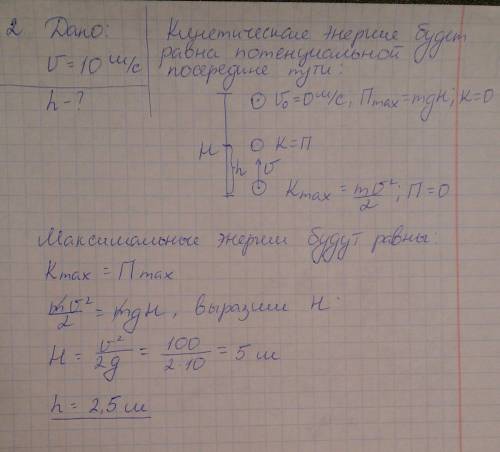 2 Дано:
υ = 10 м/с
h - ?
Кинетическая энергия будет
равна потенциальной
посередине пути:
υ₀ = 0 м/с, Пmax = mgH; К = 0
H
К = П
h υ
Кmax = mυ²/2; П = 0
Максимальные энергии будут равны:
Кmax = Пmax
mυ²/2 = mgH, выразим H:
H = υ²/2g = 100/2·10 = 5 м
h = 2,5 м